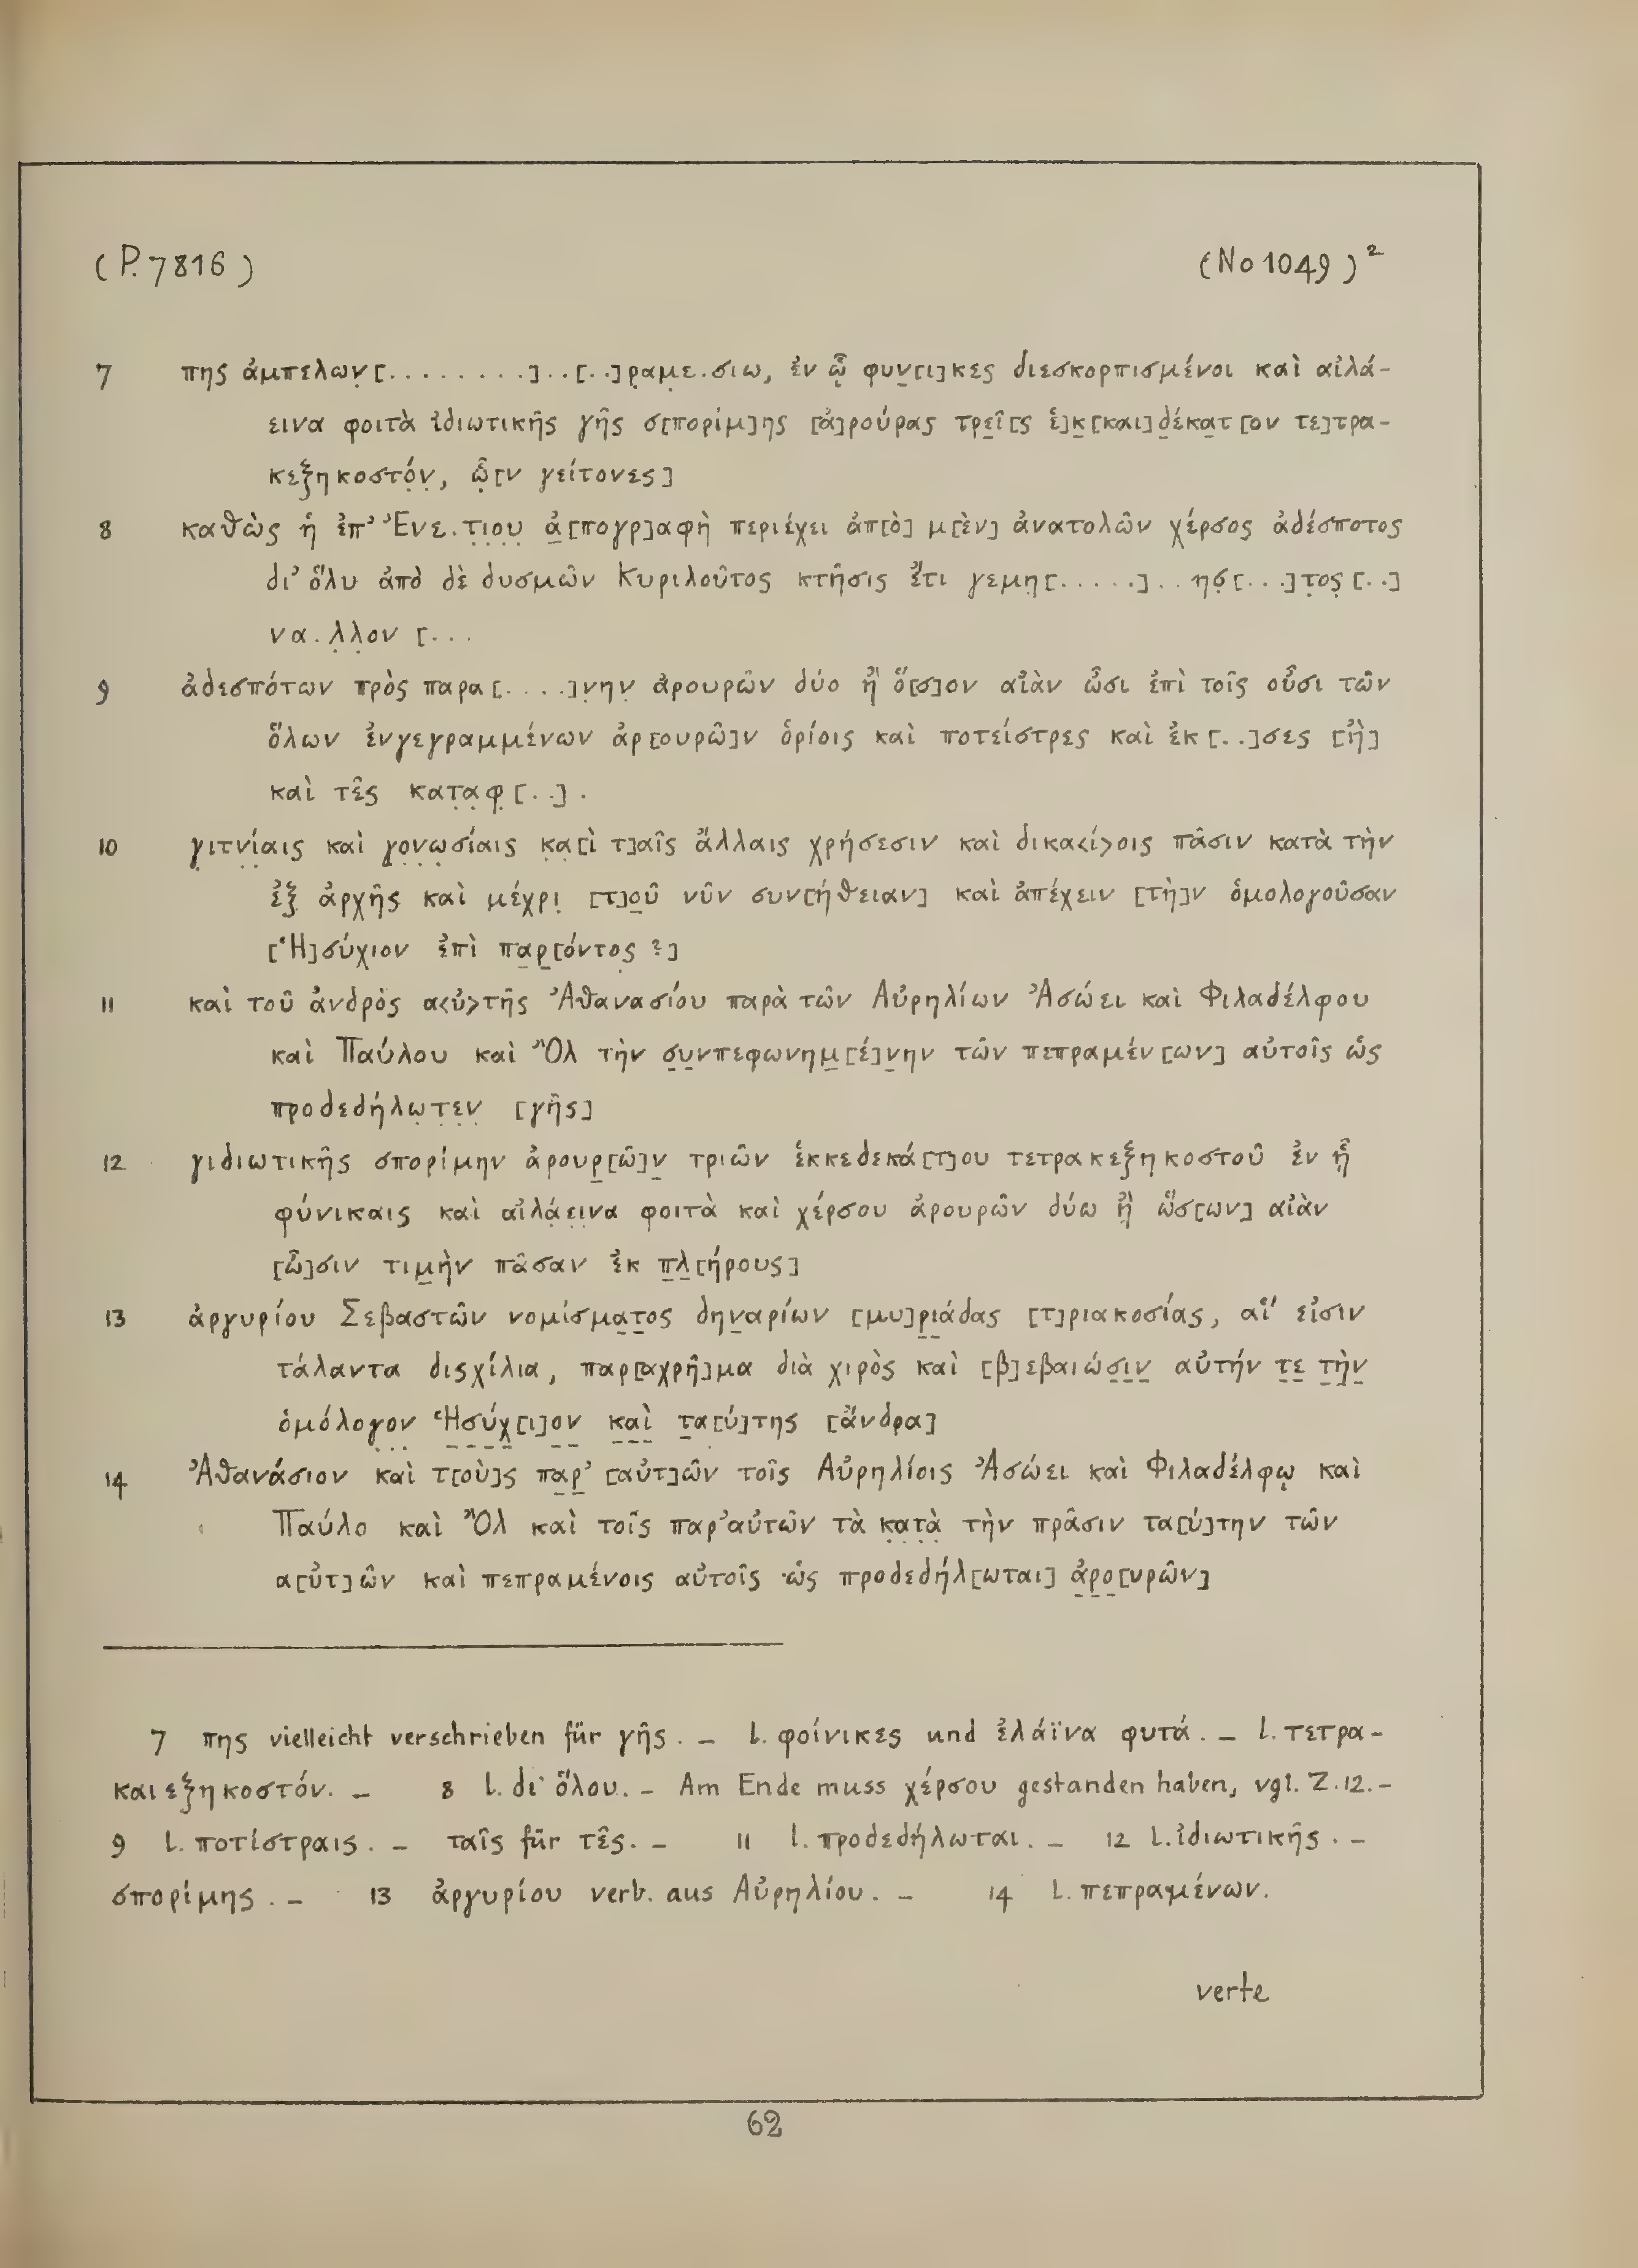 (P. 7816) (No 1049)²
7 πης ἀμπελων̣[. . . . . . . . .] . . [. .]ρ̣αμε̣.σιω, ἐν ᾧ φυν̣[ι]κες διεσκορπισμένοι καὶ αἰλά-
εινα φοιτὰ ἰδιωτικῆς γῆς σ[πορίμ]ης [ἀ]ρούρας τρε̣ῖ[ς ἑ]κ̣[και]δ̣έκα̣τ[ον τε]τρα-
κεξηκοστό̣ν̣, ὧ̣[ν γείτονες]
8 καθὼς ἡ ἐπ’ Ἐνε.τ̣ι̣ο̣υ̣ ἀ̣[πογρ]αφὴ περιέχει ἀπ[ὸ] μ[ὲν] ἀνατολῶν χέρσος ἀδέσποτος
δι’ ὅλυ ἀπὸ δὲ δυσμῶν Κυριλοῦτος κτῆσις ἔτι γεμη̣[. . . . .] . . ησ̣[. . .]τ̣ος̣[. .]
να.λ̣λ̣ον [. . .
9 ἀδεσπότων πρὸς παρα[. . . .]ν̣ην̣ ἀρουρῶν δύο ἢ ὅ[σ]ον αἰὰν ὦσι ἐπὶ τοῖς οὖσι τῶν
ὅλων ἐνγεγραμμένων ἀρ[ουρῶ]ν ὁρίοις καὶ ποτείστρες καὶ ἐκ[. .]σες [ἢ]
καὶ τε͂ς κατ̣α̣φ̣[. .] .
10 γ̣ιτν̣ί̣αις καὶ γο̣ν̣ω̣σίαις κ̣α̣[ὶ τ]αῖς ἄλλαις χρήσεσιν καὶ δικα<ί>οις πᾶσιν κατὰ τὴν
ἐξ̣ ἀρχῆς καὶ μέχρι̣ [τ]ο̣ῦ νῦν συν[ήθειαν] καὶ ἀπέχειν [τὴ]ν ὁμολογοῦσαν
[Ἡ]σύχιον ἐπὶ πα̣ρ̣[όντος ?]
11 καὶ τοῦ ἀνδρὸς α<ὐ>τῆς Ἀθανασίου παρὰ τῶν Αὐρηλίων Ἀσώει καὶ Φιλαδέλφου
καὶ Παύλου καὶ Ὂλ τὴν σ̣υ̣νπεφωνημ̣[έ]ν̣ην τῶν πεπραμέν[ων] αὐτοῖς ὡς
προδεδήλω̣τ̣ε̣ν̣ [γῆς]
12 γιδιωτικῆς σπορίμην ἀρουρ̣[ῶ]ν̣ τριῶν ἑκκεδεκά[τ]ου τετρακεξηκοστοῦ ἐν ᾗ
φύνικαις καὶ αἰλά̣ε̣ι̣να φοιτὰ καὶ χέρσου ἀρουρῶν δύω ἢ ὥσ[ων] αἰὰν
[ὦ]σιν τιμ̣ὴν πᾶσαν ἐκ π̣λ̣[ήρους]
13 ἀργυρίου Σεβαστῶν νομίσμα̣τ̣ος δην̣αρίων [μυ]ρ̣ι̣άδας [τ]ριακοσίας, αἵ εἰσιν
τάλαντα δισχίλια, παρ[αχρῆ]μα διὰ χιρὸς καὶ [β]εβαιώσ̣ι̣ν̣ αὐτήν τ̣ε̣ τ̣ὴ̣ν̣
ὁμόλογ̣ο̣ν̣ Ἡ̣σ̣ύ̣χ̣[ι]ο̣ν̣ κ̣α̣ὶ̣ τ̣α[ύ]της [ἄνδρα]
14 Ἀθανάσιον καὶ τ[οὺ]ς πα̣ρ̣’ [αὐτ]ῶν τοῖς Αὐρηλίοις Ἀσώει καὶ Φιλαδέλφῳ καὶ
Παύλο καὶ Ὂλ καὶ τοῖς παρ’ αὐτῶν τὰ κ̣α̣τ̣ὰ̣ τὴν πρᾶσιν τα[ύ]την τῶν
α[ὐτ]ῶν καὶ πεπραμένοις αὐτοῖς ὡς προδεδήλ[ωται] ἀ̣ρ̣ο̣[υρῶν]
7 πης vielleicht verschrieben für γῆς. – l. φοίνικες und ἐλάϊνα φυτά. – l. τετρα-
καιεξηκοστόν. – 8 l. δι’ ὅλου. – Am Ende muss χέρσου gestanden haben, vgl. Z. 12. –
9 l. ποτίστραις. – ταῖς für τε͂ς. – 11 l. προδεδήλωται. – 12 l. ἰδιωτικῆς. –
σπορίμης. – 13 ἀργυρίου verb. aus Αὐρηλίου. – 14 l. πεπραμένων.
verte
62